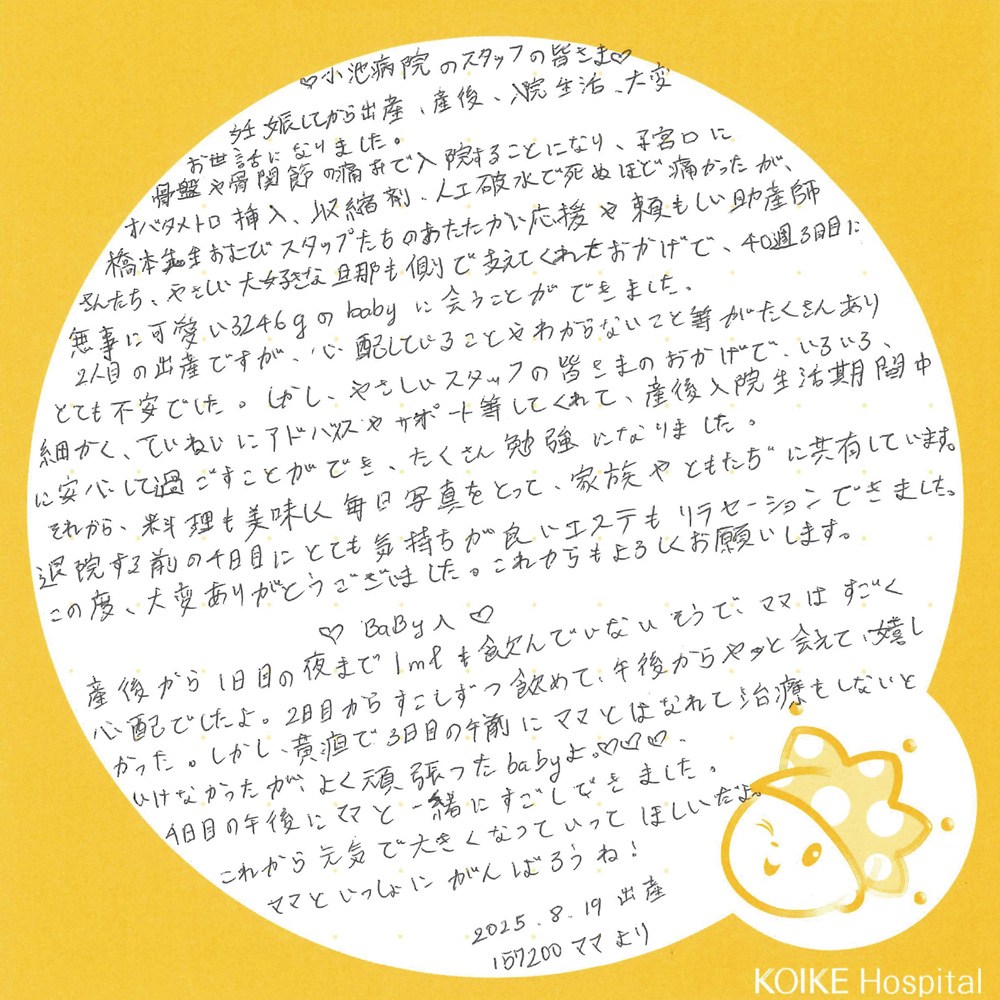 ♡小池病院のスタッフの皆さま♡
妊娠してから出産、産後、入院生活、大変
お世話になりました。
骨盤や骨関節の痛みで入院することになり、子宮口に
オバタメトロ挿入、収縮剤、人工破水で死ぬほど痛かったが、
橋本先生およびスタップたちのあたたかい応援や頼もしい助産師
さんたち、やさしい大好きな旦那も側で支えてくれたおかげで、40週3日目に
無事に可愛い3246gのbabyに会うことができました。
2人目の出産ですが、心配していることやわからないこと等がたくさんあり
とても不安でした。しかし、やさしいスタッフの皆さまのおかげで、いろいろ、
細かく、ていねいにアドバイスやサポート等してくれて、産後入院生活期間中
に安心して過ごすことができ、たくさん勉強になりました。
それから、料理も美味しく毎日写真をとって、家族やともたちに共有しています。
退院する前の4日目にとても気持ちが良いエステもリラセーションできました。
この度、大変ありがとうございました。これからもよろしくお願いします。
♡ BaBy へ ♡
産後から1日目の夜まで1mlも飲んでいないそうで、ママはすごく
心配でしたよ。2日目からすこしずつ飲めて、午後からやっと会えて、嬉し
かった。しかし、黄疸で3日目の午前にママとはなれして治療もしないと
いけなかったが、よく頑張ったbabyよ♡♡♡、
4日目の午後にママと一緒にすごしできました。
これから元気で大きくなっていってほしいだよ。
ママといっしょにがんばろうね！
2025.8.19 出産
157200 ママより
KOIKE Hospital